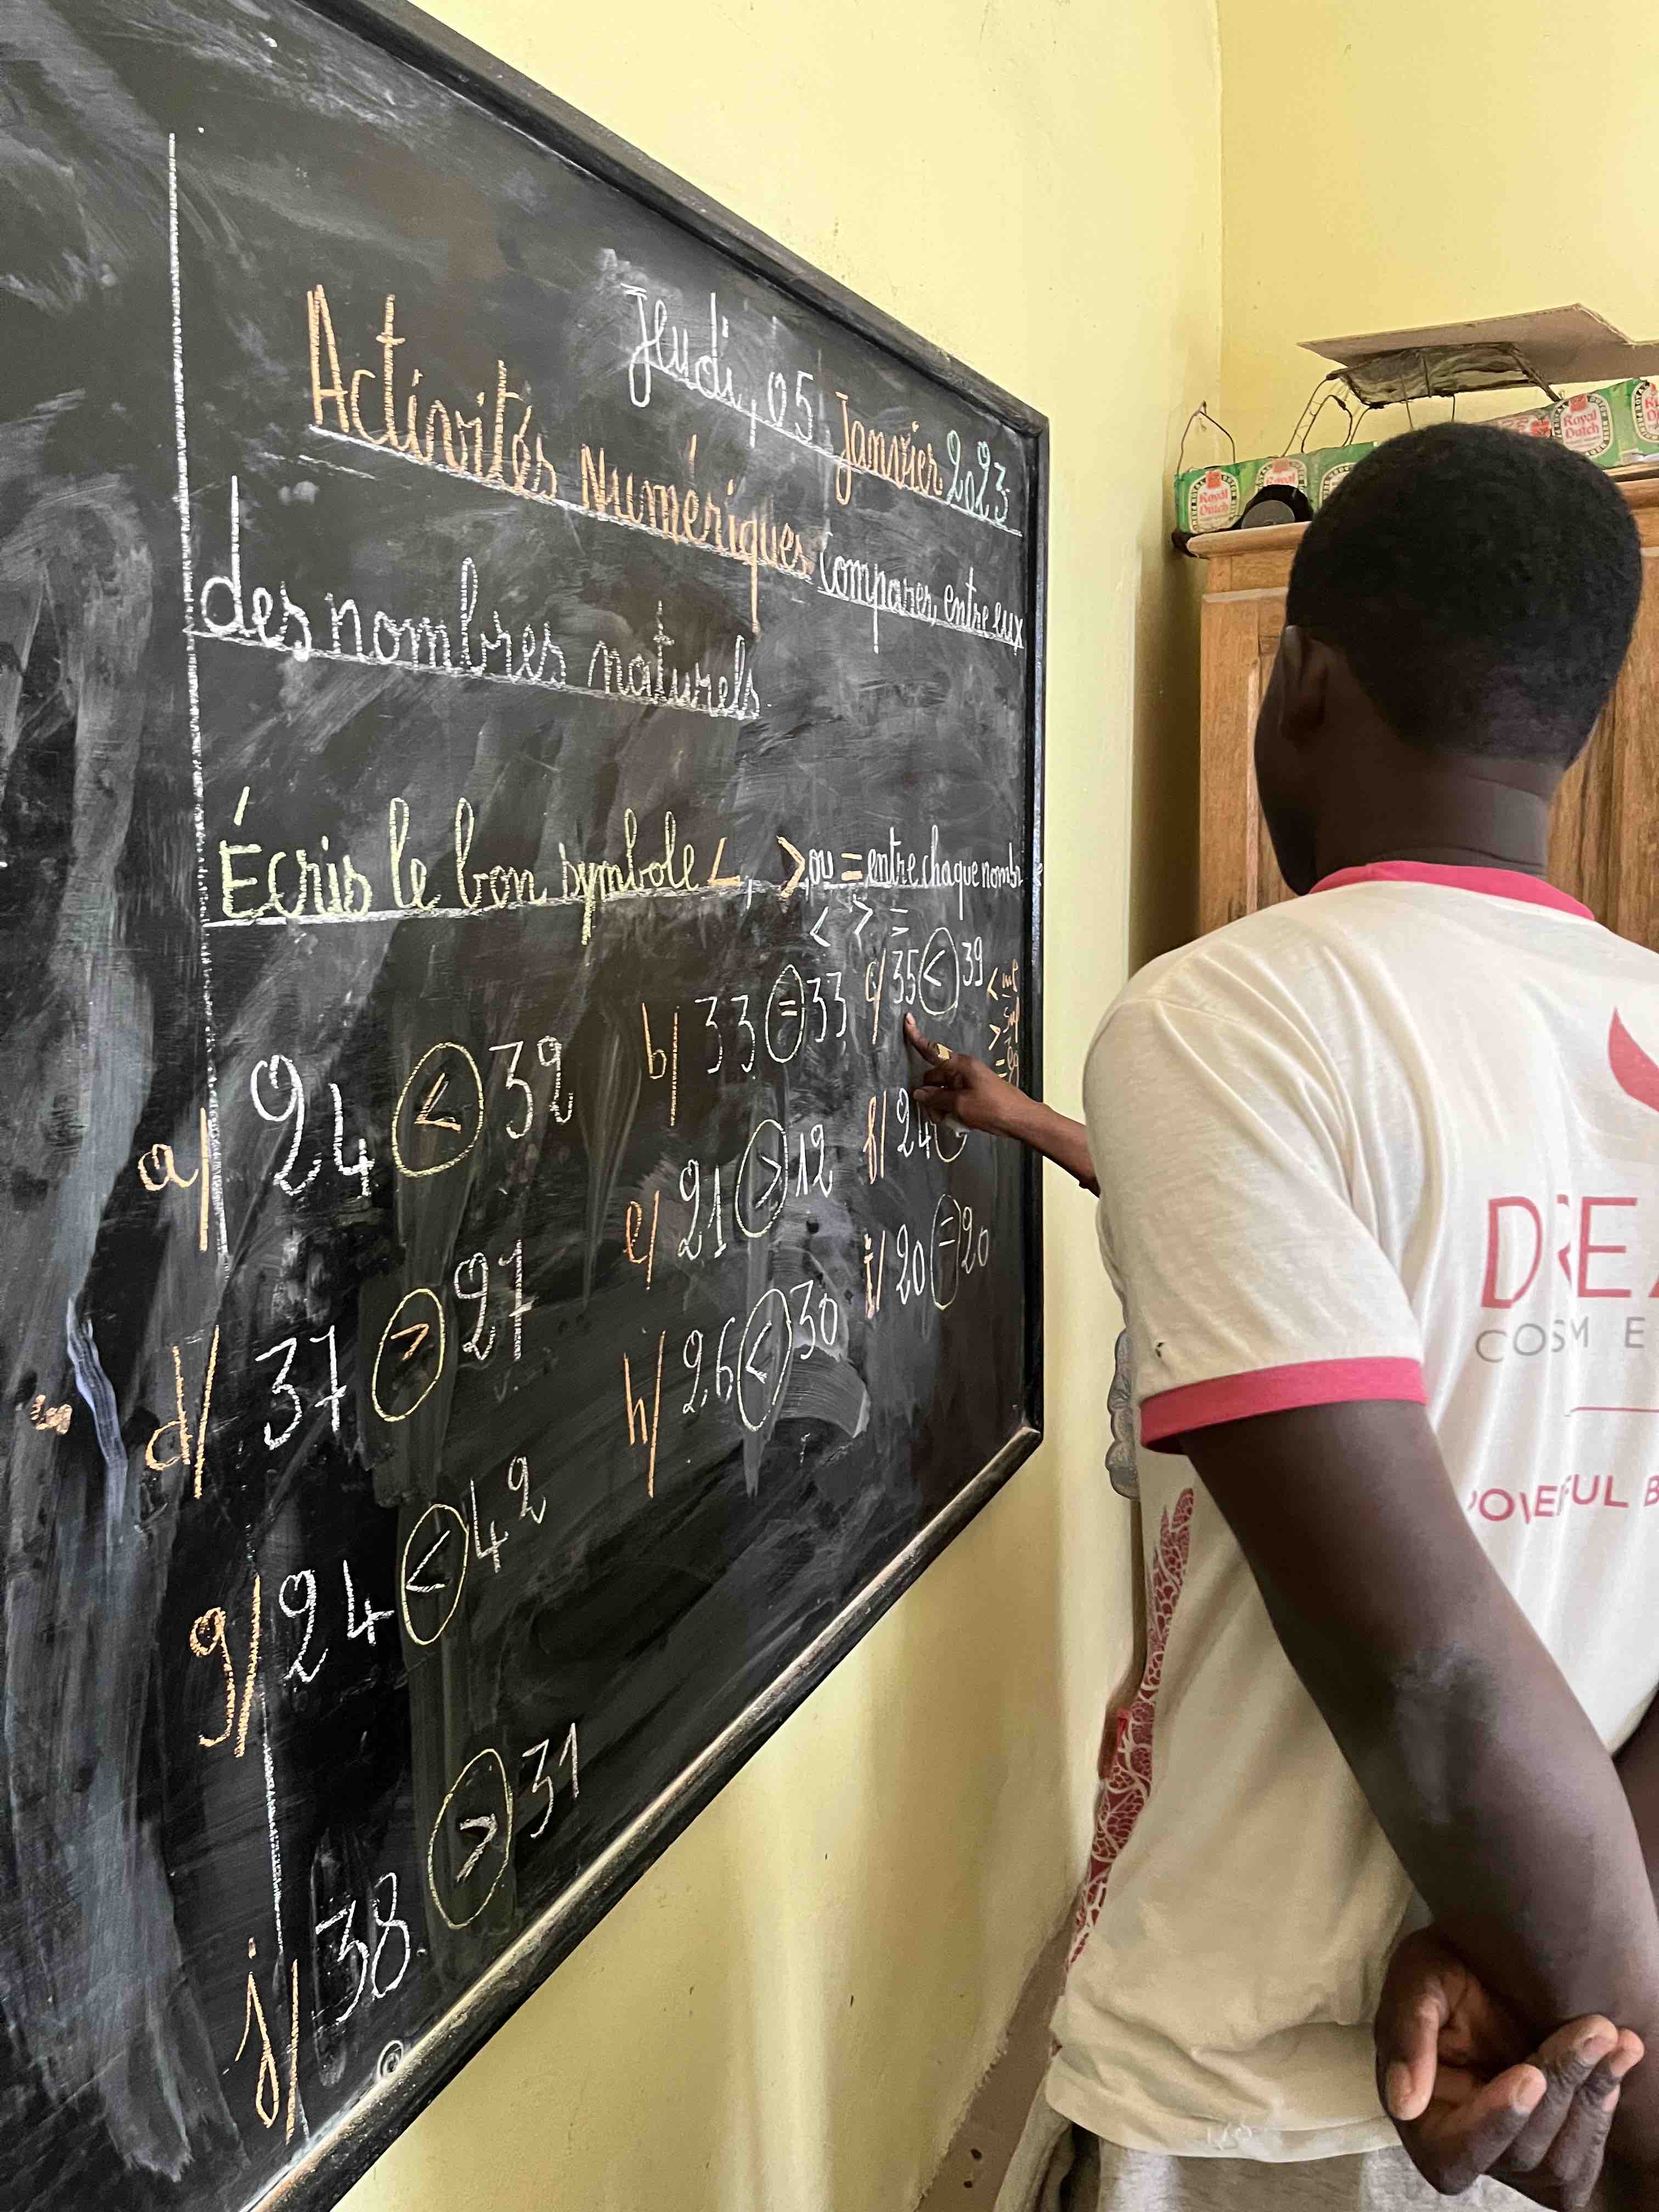 Jeudi, 05 Janvier 2023
Activités Numériques Comparer, entre eux
des nombres naturels
Écris le bon symbole <, >, ou = entre chaque nombr
< > =
a/ 24 < 32 b/ 33 = 33 c/ 35 < 39
<
>
=
d/ 37 > 27 e/ 21 > 12 f/ 24
g/ 24 < 42 h/ 26 < 30 i/ 20 = 20
j/ 38 > 31
Royal Dutch
Royal Dutch
Royal Dutch
DREA
COSME
POWERFUL B